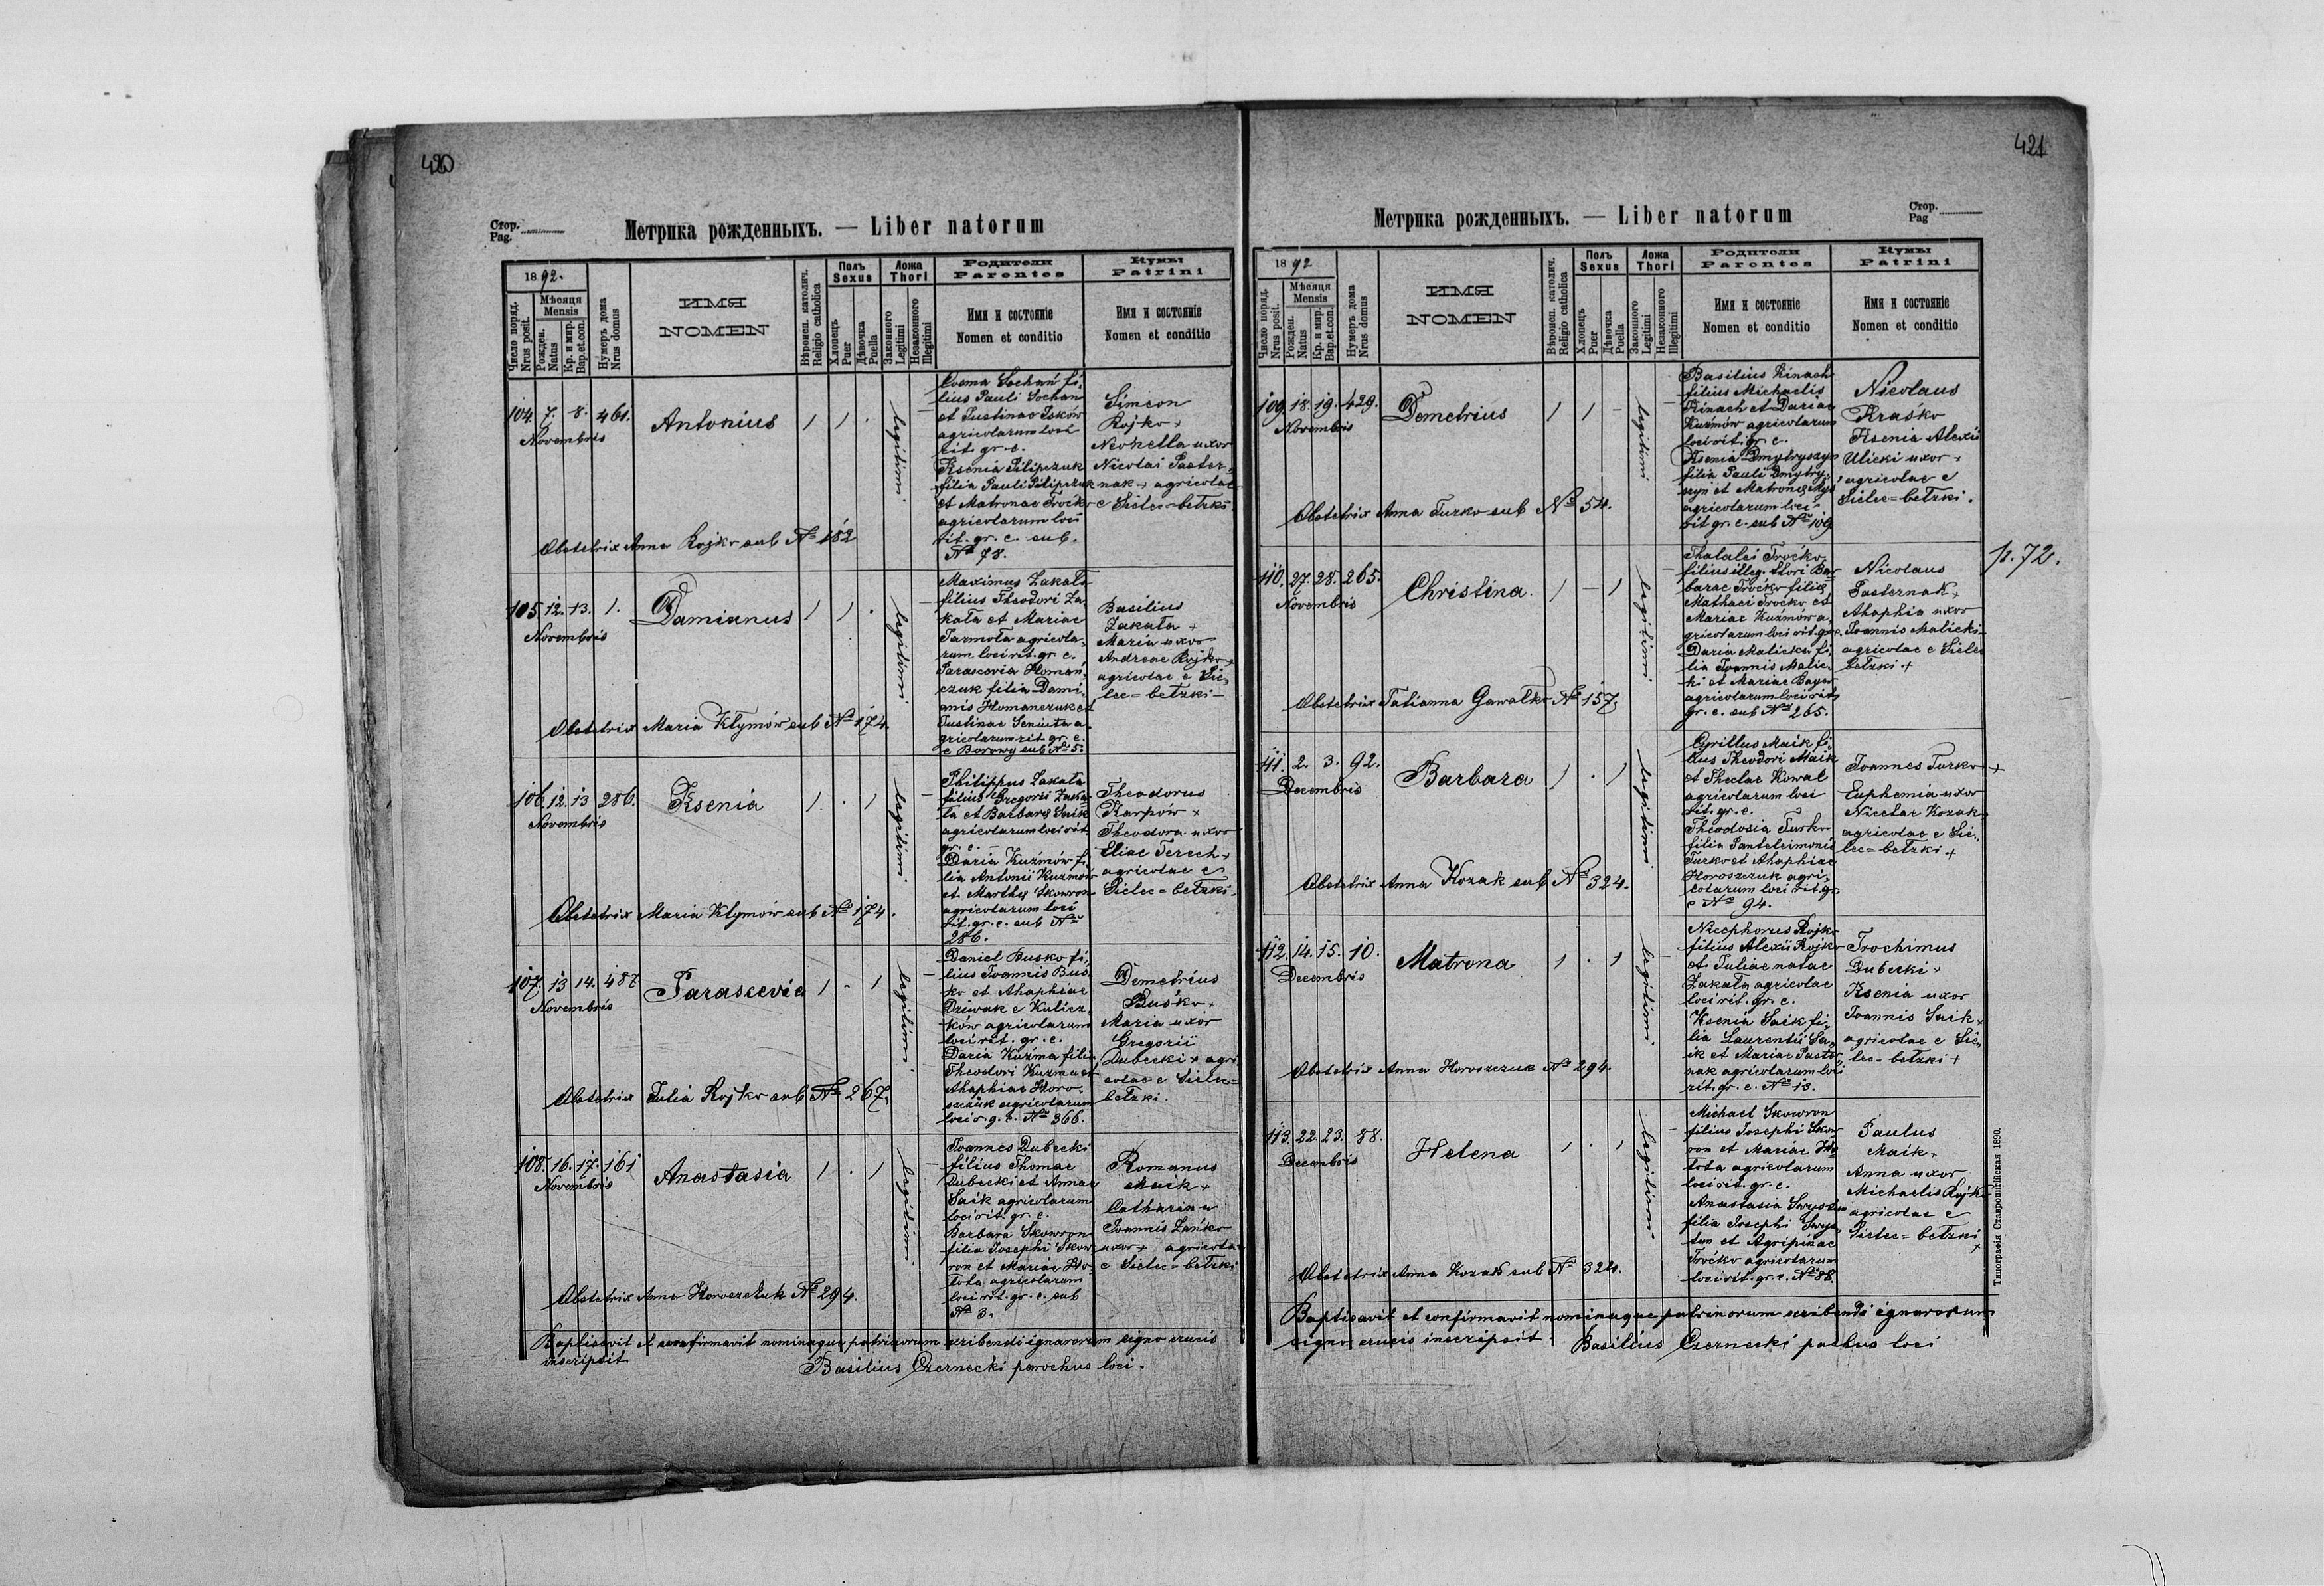 420
Стор.
Pag.
Метрика рожденныхъ. — Liber natorum
1892.
Число поряд.
Nrus posit.
Мѣсяця
Mensis
Рожден.
Natus
Кр. и мир.
Bap.et.con.
Нумеръ дома
Nrus domus
ИМЯ
NOMEN
Вѣроисп. католич.
Religio catholica
Полъ
Sexus
Хлопецъ
Puer
Дѣвочка
Puella
Ложа
Thori
Законного
Legitimi
Незаконного
Illegitimi
Родители
Parentes
Имя и состояніе
Nomen et conditio
Кумы
Patrini
Имя и состояніе
Nomen et conditio
104. 7. 8. 461.
Novembris
Antonius
1 1 .
legitimi
Cosma Sochań fi,,
lius Pauli Sochań
et Justinae Iśków
agricolarum loci
rit. gr. c.
Ksenia Pilipczuk
filia Pauli Pilipczuk
et Matronae Troćko
agricolarum loci
rit. gr. c. sub.
No 78.
Simeon
Rojko +
Neonella uxor
Nicolai Paster,,
nak + agricolae
e Sielec=bełzki
Obstetrix Anna Rojko sub No 182
105. 12. 13. 1.
Novembris
Damianus
1 1 .
legitimi
Maximus Zakała
filius Theodori Za
kała et Mariae
Jarmoła agricola,,
rum loci rit. gr. c.
Parascevia Homań
czuk filia Dami,,
anis Homanczuk et
Justinae Seniuta a
gricolarum rit. gr. c.
e Borowy sub No 5.
Basilius
Zakała +
Maria uxor
Andreae Rojko +
agricolae e Sie,,
lec=bełzki
Obstetrix Maria Kłymów sub No 174.
106. 12. 13 286.
Novembris
Ksenia
1 . 1
legitimi
Philippus Zakała
filius Gregorii Zaka
ła et Barbarae Saik
agricolarum loci rit.
gr. c. —
Daria Kuźmów fi,,
lia Antonii Kuźmów
et Marthae Skowron
agricolarum loci
rit. gr. c. sub No
286.
Theodorus
Karpów +
Theodora uxor
Eliae Terech +
agricolae e
Sielec=bełzki
Obstetrix Maria Kłymów sub No 174.
107. 13 14. 487.
Novembris
Parascevia
1 . 1
legitimi
Daniel Busko fi,,
lius Joannis Bus
ko et Ahaphiae
Dziwak e Kulicz
ków agricolarum
loci rit. gr. c.
Daria Kuźma filia
Theodori Kuźma et
Ahaphiae Horo
szczuk agricolarum
loci r. g. c. No 366.
Demetrius
Buśko +
Maria uxor
Gregorii
Dubecki + agri
colae e Sielec=
bełzki.
Obstetrix Julia Rojko sub No 267.
108. 16. 17. 161
Novembris
Anastasia
1 . 1
legitimi
Joannes Dubecki
filius Thomae
Dubecki et Annae
Saik agricolarum
loci rit. gr. c.
Barbara Skowron
filia Josephi Skow
ron et Mariae Ho
łota agricolarum
loci rit. gr. c. sub
No 3.
Romanus
Maik +
Catharina
Joannis Zańko
uxor + agricola
e Sielec=bełzki
Obstetrix Anna Horoszczuk No 294.
Baptisavit et confirmavit nominaque patrinorum scribendi ignarorum signo crucis
inscripsit
Basilius Czernecki parochus loci.
421
Стор.
Pag
Метрика рожденныхъ. — Liber natorum
1892
Число поряд.
Nrus posit.
Мѣсяця
Mensis
Рожден.
Natus
Кр. и мир.
Bap.et.con.
Нумеръ дома
Nrus domus
ИМЯ
NOMEN
Вѣроисп. католич.
Religio catholica
Полъ
Sexus
Хлопецъ
Puer
Дѣвочка
Puella
Ложа
Thori
Законного
Legitimi
Незаконного
Illegitimi
Родители
Parentes
Имя и состояніе
Nomen et conditio
Кумы
Patrini
Имя и состояніе
Nomen et conditio
109. 18. 19. 429.
Novembris
Demetrius
1 1 -
legitimi
Basilius Kinach
filius Michaelis
Kinach et Dariae
Kuźmów agricolarum
loci rit. gr. c.
Ksenia Dmytryszyn
filia Pauli Dmytry,,
szyn et Matronae
agricolarum loci
rit gr. c. sub No 109
Nicolaus
Kraśko
Ksenia Alexii
Ulicki uxor +
agricolae e
Sielec=bełzki.
Obstetrix Anna Turko sub No 54.
110. 27. 28. 265.
Novembris
Christina.
1 - 1
legitimi
Thalalei Troćko
filius illeg. thori Bar
barae Troćko filiae
Mathaei Troćko et
Mariae Kuźmów a,,
gricolarum loci rit. gr. c.
Daria Malicki fi,,
lia Joannis Malic
ki et Mariae Bayer
agricolarum loci rit
gr. c. sub No 265.
Nicolaus
Pasternak +
Ahaphia uxor
Joannis Malicki
agricolae e Sielec
bełzki +
p. 72.
Obstetrix Tatianna Gawałko No 157.
111. 2. 3. 92.
Decembris
Barbara
1 . 1
legitimi
Cyrillus Maik fi,,
lius Theodori Maik
et Theclae Kowal
agricolarum loci
rit. gr. c.
Theodosia Turko
filia Panteleimonis
Turko et Ahaphiae
Horoszczuk agri,,
colarum loci rit. gr.
c No 94.
Joannes Turko +
Euphemia uxor
Nicetae Kozak
agricolae e Sie,,
lec=bełzki +
Obstetrix Anna Kozak sub No 324.
112. 14. 15. 10.
Decembris
Matrona
1 . 1
legitimi
Nicephorus Rojko
filius Alexii Rojko
et Juliae natae
Zakała agricolae
loci rit. gr. c.
Ksenia Saik fi,,
lia Laurentii Sa,,
ik et Mariae Paster,,
nak agricolarum loci
rit. gr. c. No 13.
Trochimus
Dubecki +
Ksenia uxor
Joannis Saik +
agricolae e Sie,,
lec-bełzki +
Obstetrix Anna Horoszczuk No 294.
113. 22. 23. 88.
Decembris
Helena
1 . 1
legitimi
Michael Skowron
filius Josephi Skow
ron et Mariae Ho
łota agricolarum
loci rit. gr. c.
Anastasia
filia Josephi
et Agripinae
Troćko agricolarum
loci rit. gr. c. No 88.
Paulus
Maik +
Anna uxor
Michaelis Rojko
agricolae e
Sielec=bełzki
+
Obstetrix Anna Kozak sub No 324.
Baptisavit et confirmavit nominaque patrinorum scribendi ignarorum
signo crucis inscripsit
Basilius Czernecki pachus loci
Типографія Ставропигійская 1890.